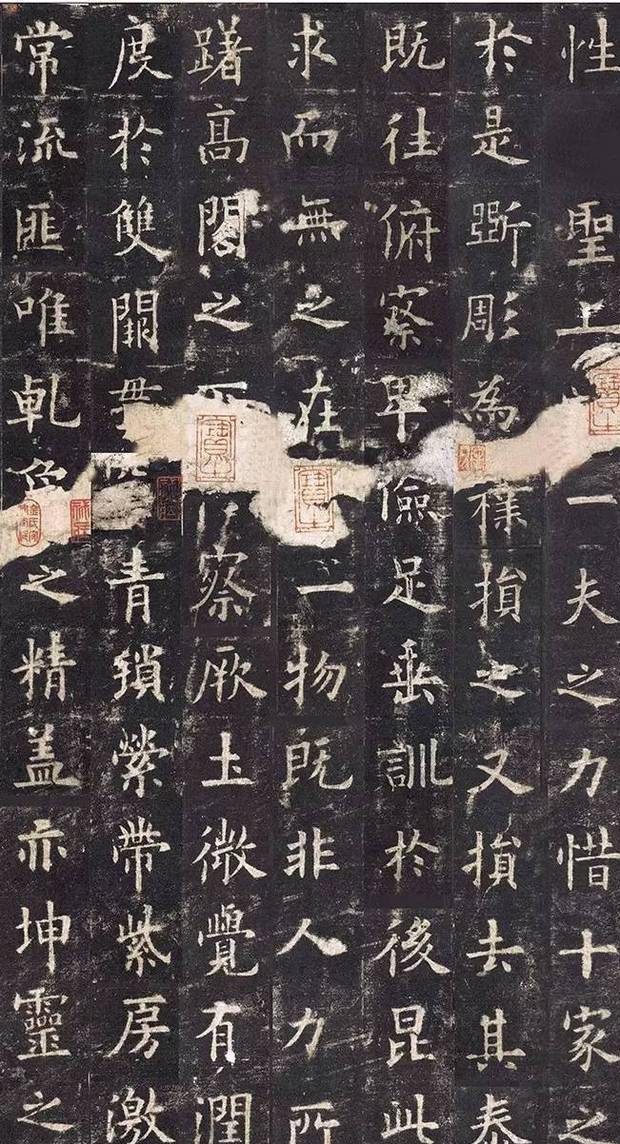 性 聖上 一夫之力惜十家之
於是斲彫為樸損之又損去其泰
既往俯察卑儉足垂訓於後昆此
求而無之在 一物既非人力所
躇高閣之 察厥土微覺有潤
度於雙闕貫 青瑣縈帶紫房激
常流匪唯乾 之精盖亦坤靈之